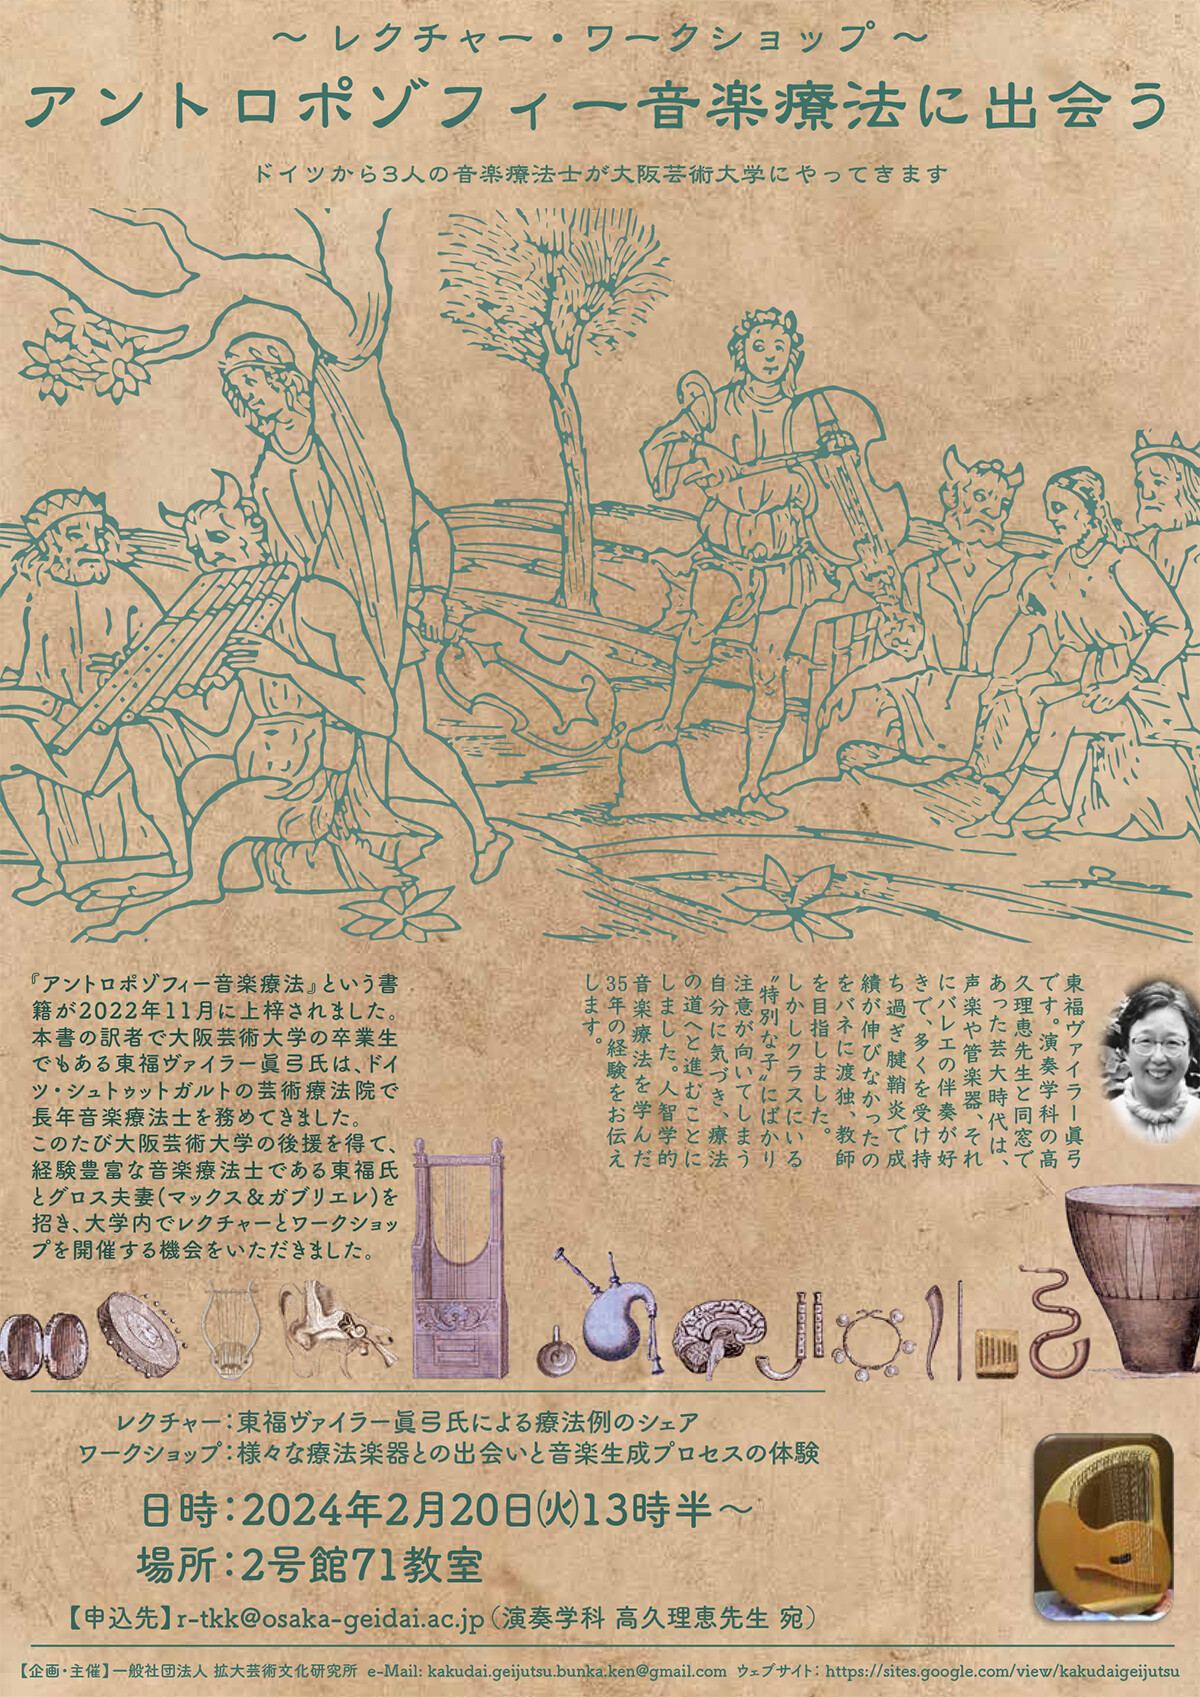 ～ レクチャー・ワークショップ ～
アントロポゾフィー音楽療法に出会う
ドイツから3人の音楽療法士が大阪芸術大学にやってきます
『アントロポゾフィー音楽療法』という書
籍が2022年11月に上梓されました。
本書の訳者で大阪芸術大学の卒業生
でもある東福ヴァイラー眞弓氏は、ドイ
ツ・シュトゥットガルトの芸術療法院で
長年音楽療法士を務めてきました。
このたび大阪芸術大学の後援を得て、
経験豊富な音楽療法士である東福氏
とグロス夫妻(マックス＆ガブリエレ)を
招き、大学内でレクチャーとワークショッ
プを開催する機会をいただきました。
東福ヴァイラー眞弓
です。演奏学科の高
久理恵先生と同窓で
あった芸大時代は、
声楽や管楽器、それ
にバレエの伴奏が好
きで、多くを受け持
ち過ぎ腱鞘炎で成
績が伸びなかったの
をバネに渡独、教師
を目指しました。
しかしクラスにいる
“特別な子”にばかり
注意が向いてしまう
自分に気づき、療法
の道へと進むことに
しました。人智学的
音楽療法を学んだ
35年の経験をお伝え
します。
レクチャー：東福ヴァイラー眞弓氏による療法例のシェア
ワークショップ：様々な療法楽器との出会いと音楽生成プロセスの体験
日時：2024年2月20日㈫13時半～
場所：2号館71教室
【申込先】r-tkk@osaka-geidai.ac.jp（演奏学科 高久理恵先生 宛）
【企画・主催】一般社団法人 拡大芸術文化研究所 e-Mail: kakudai.geijutsu.bunka.ken@gmail.com ウェブサイト： https://sites.google.com/view/kakudaigeijutsu